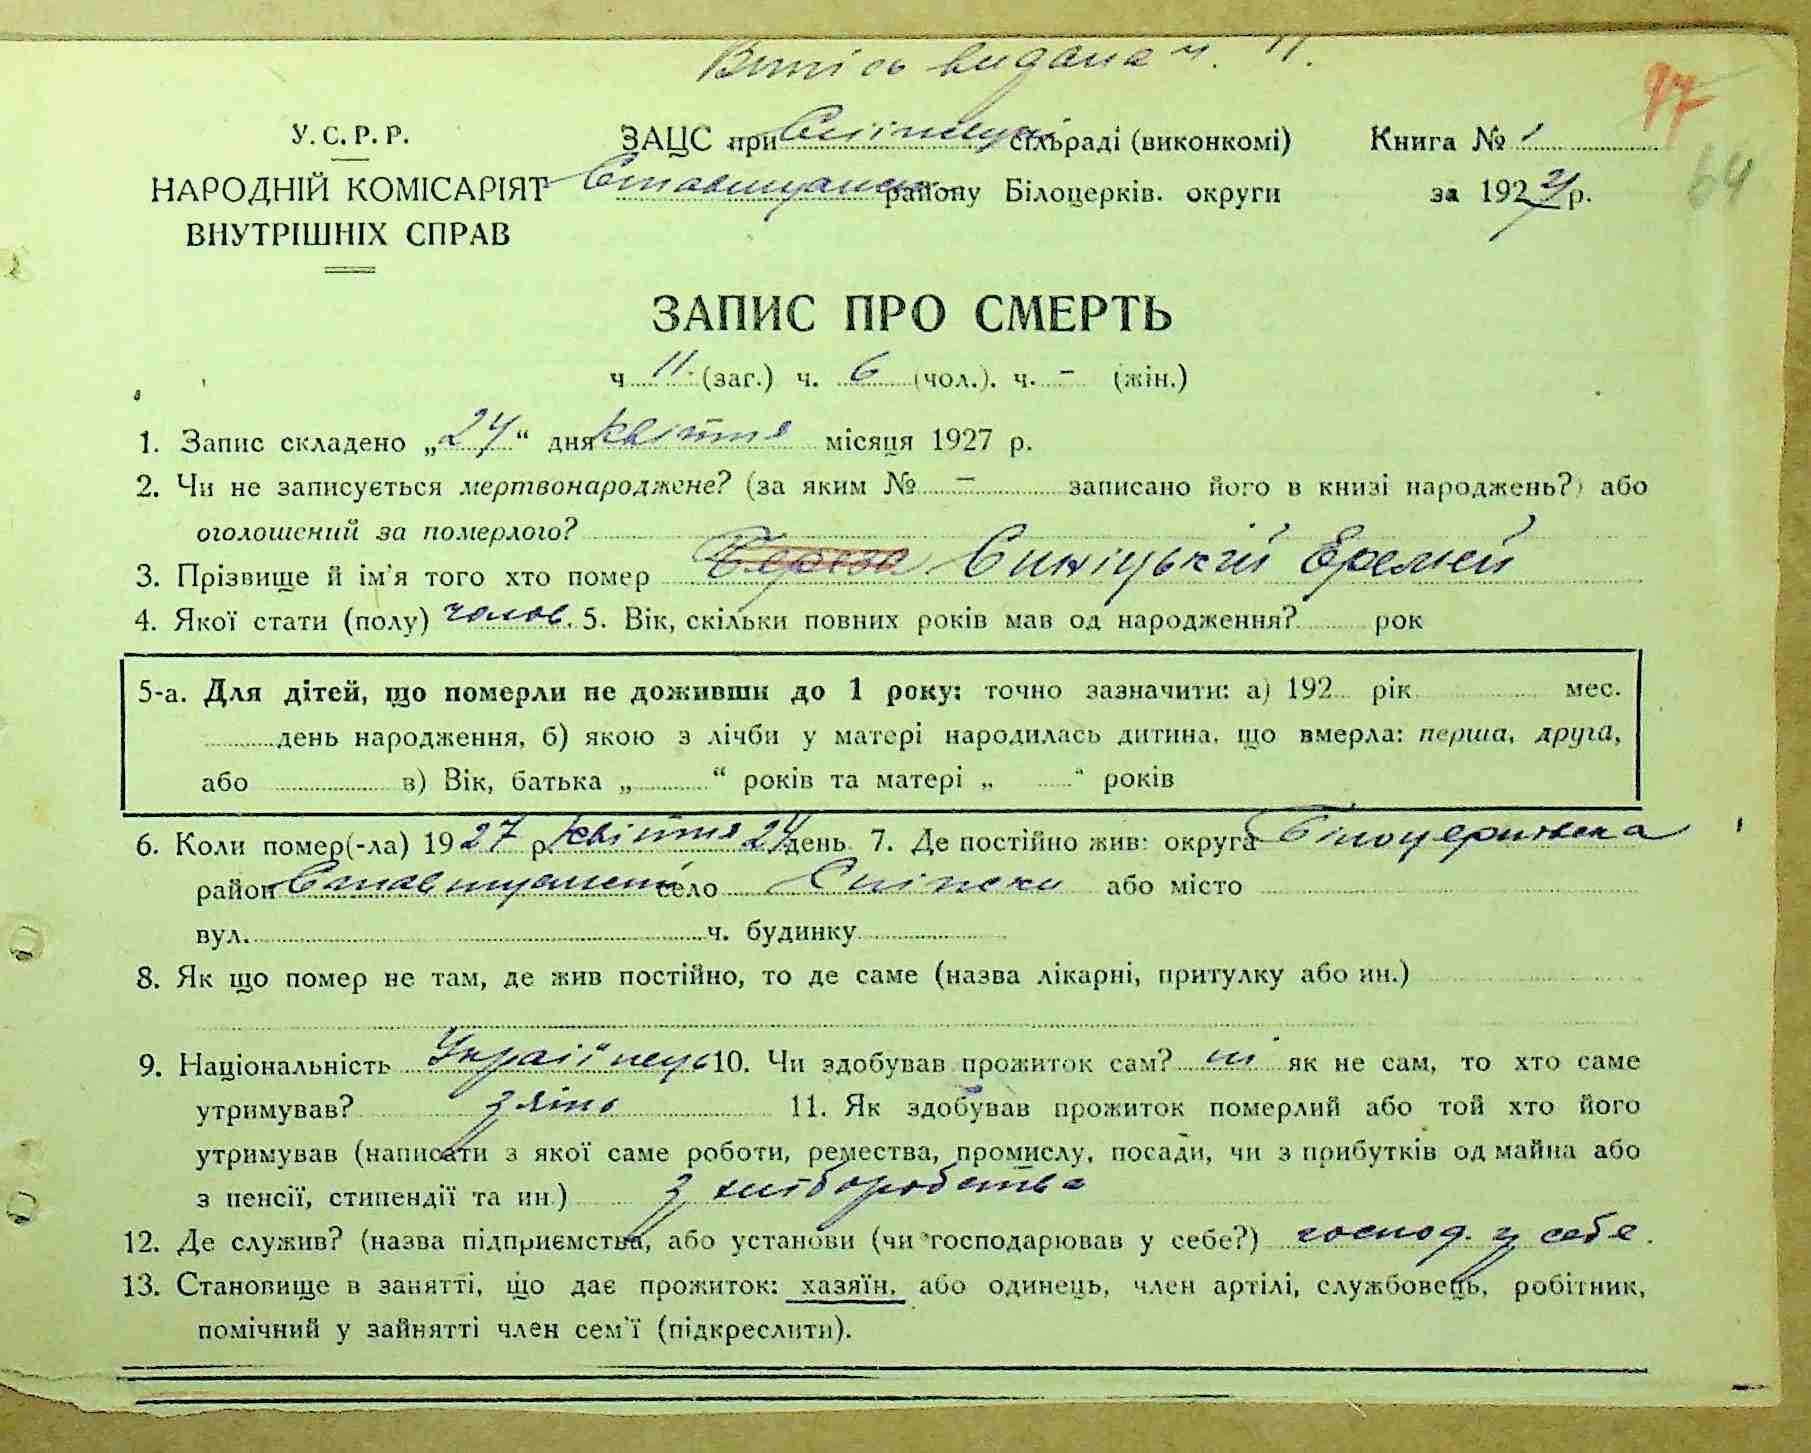 Випись видана ч. 11.
97
У. С. Р. Р.
ЗАЦС при сільраді (виконкомі)
Книга № 1
64
НАРОДНІЙ КОМІСАРІЯТ
Ставищанськ району Білоцерків. округи
за 1927 р.
ВНУТРІШНІХ СПРАВ
ЗАПИС ПРО СМЕРТЬ
ч 11. (заг.) ч. 6 (чол.). ч. - (жін.)
1. Запис складено „24“ дня квітня місяця 1927 р.
2. Чи не записується мертвонароджене? (за яким № - записано його в книзі народжень?) або
оголошений за померлого?
3. Прізвище й ім'я того хто помер Береза Синіцький Еремей
4. Якої стати (полу) чолов. 5. Вік, скільки повних років мав од народження? рок
5-а. Для дітей, що померли не доживши до 1 року: точно зазначити: а) 192 рік мес.
день народження, б) якою з лічби у матері народилась дитина, що вмерла: перша, друга,
або в) Вік, батька „ “ років та матері „ “ років
6. Коли помер(-ла) 1927 р. квітня 24 день 7. Де постійно жив: округа Білоцерківська
район Ставищанський село або місто
вул. ч. будинку
8. Як що помер не там, де жив постійно, то де саме (назва лікарні, притулку або ин.)
9. Національність Україїнець 10. Чи здобував прожиток сам? ні як не сам, то хто саме
утримував? 11. Як здобував прожиток померлий або той хто його
утримував (написати з якої саме роботи, ремества, промислу, посади, чи з прибутків од майна або
з пенсії, стипендії та ин.) з хліборобства
12. Де служив? (назва підприємства, або установи (чи господарював у себе?) господ. у себе.
13. Становище в занятті, що дає прожиток: хазяїн, або одинець, член артілі, службовець, робітник,
помічний у зайнятті член сем'ї (підкреслити).